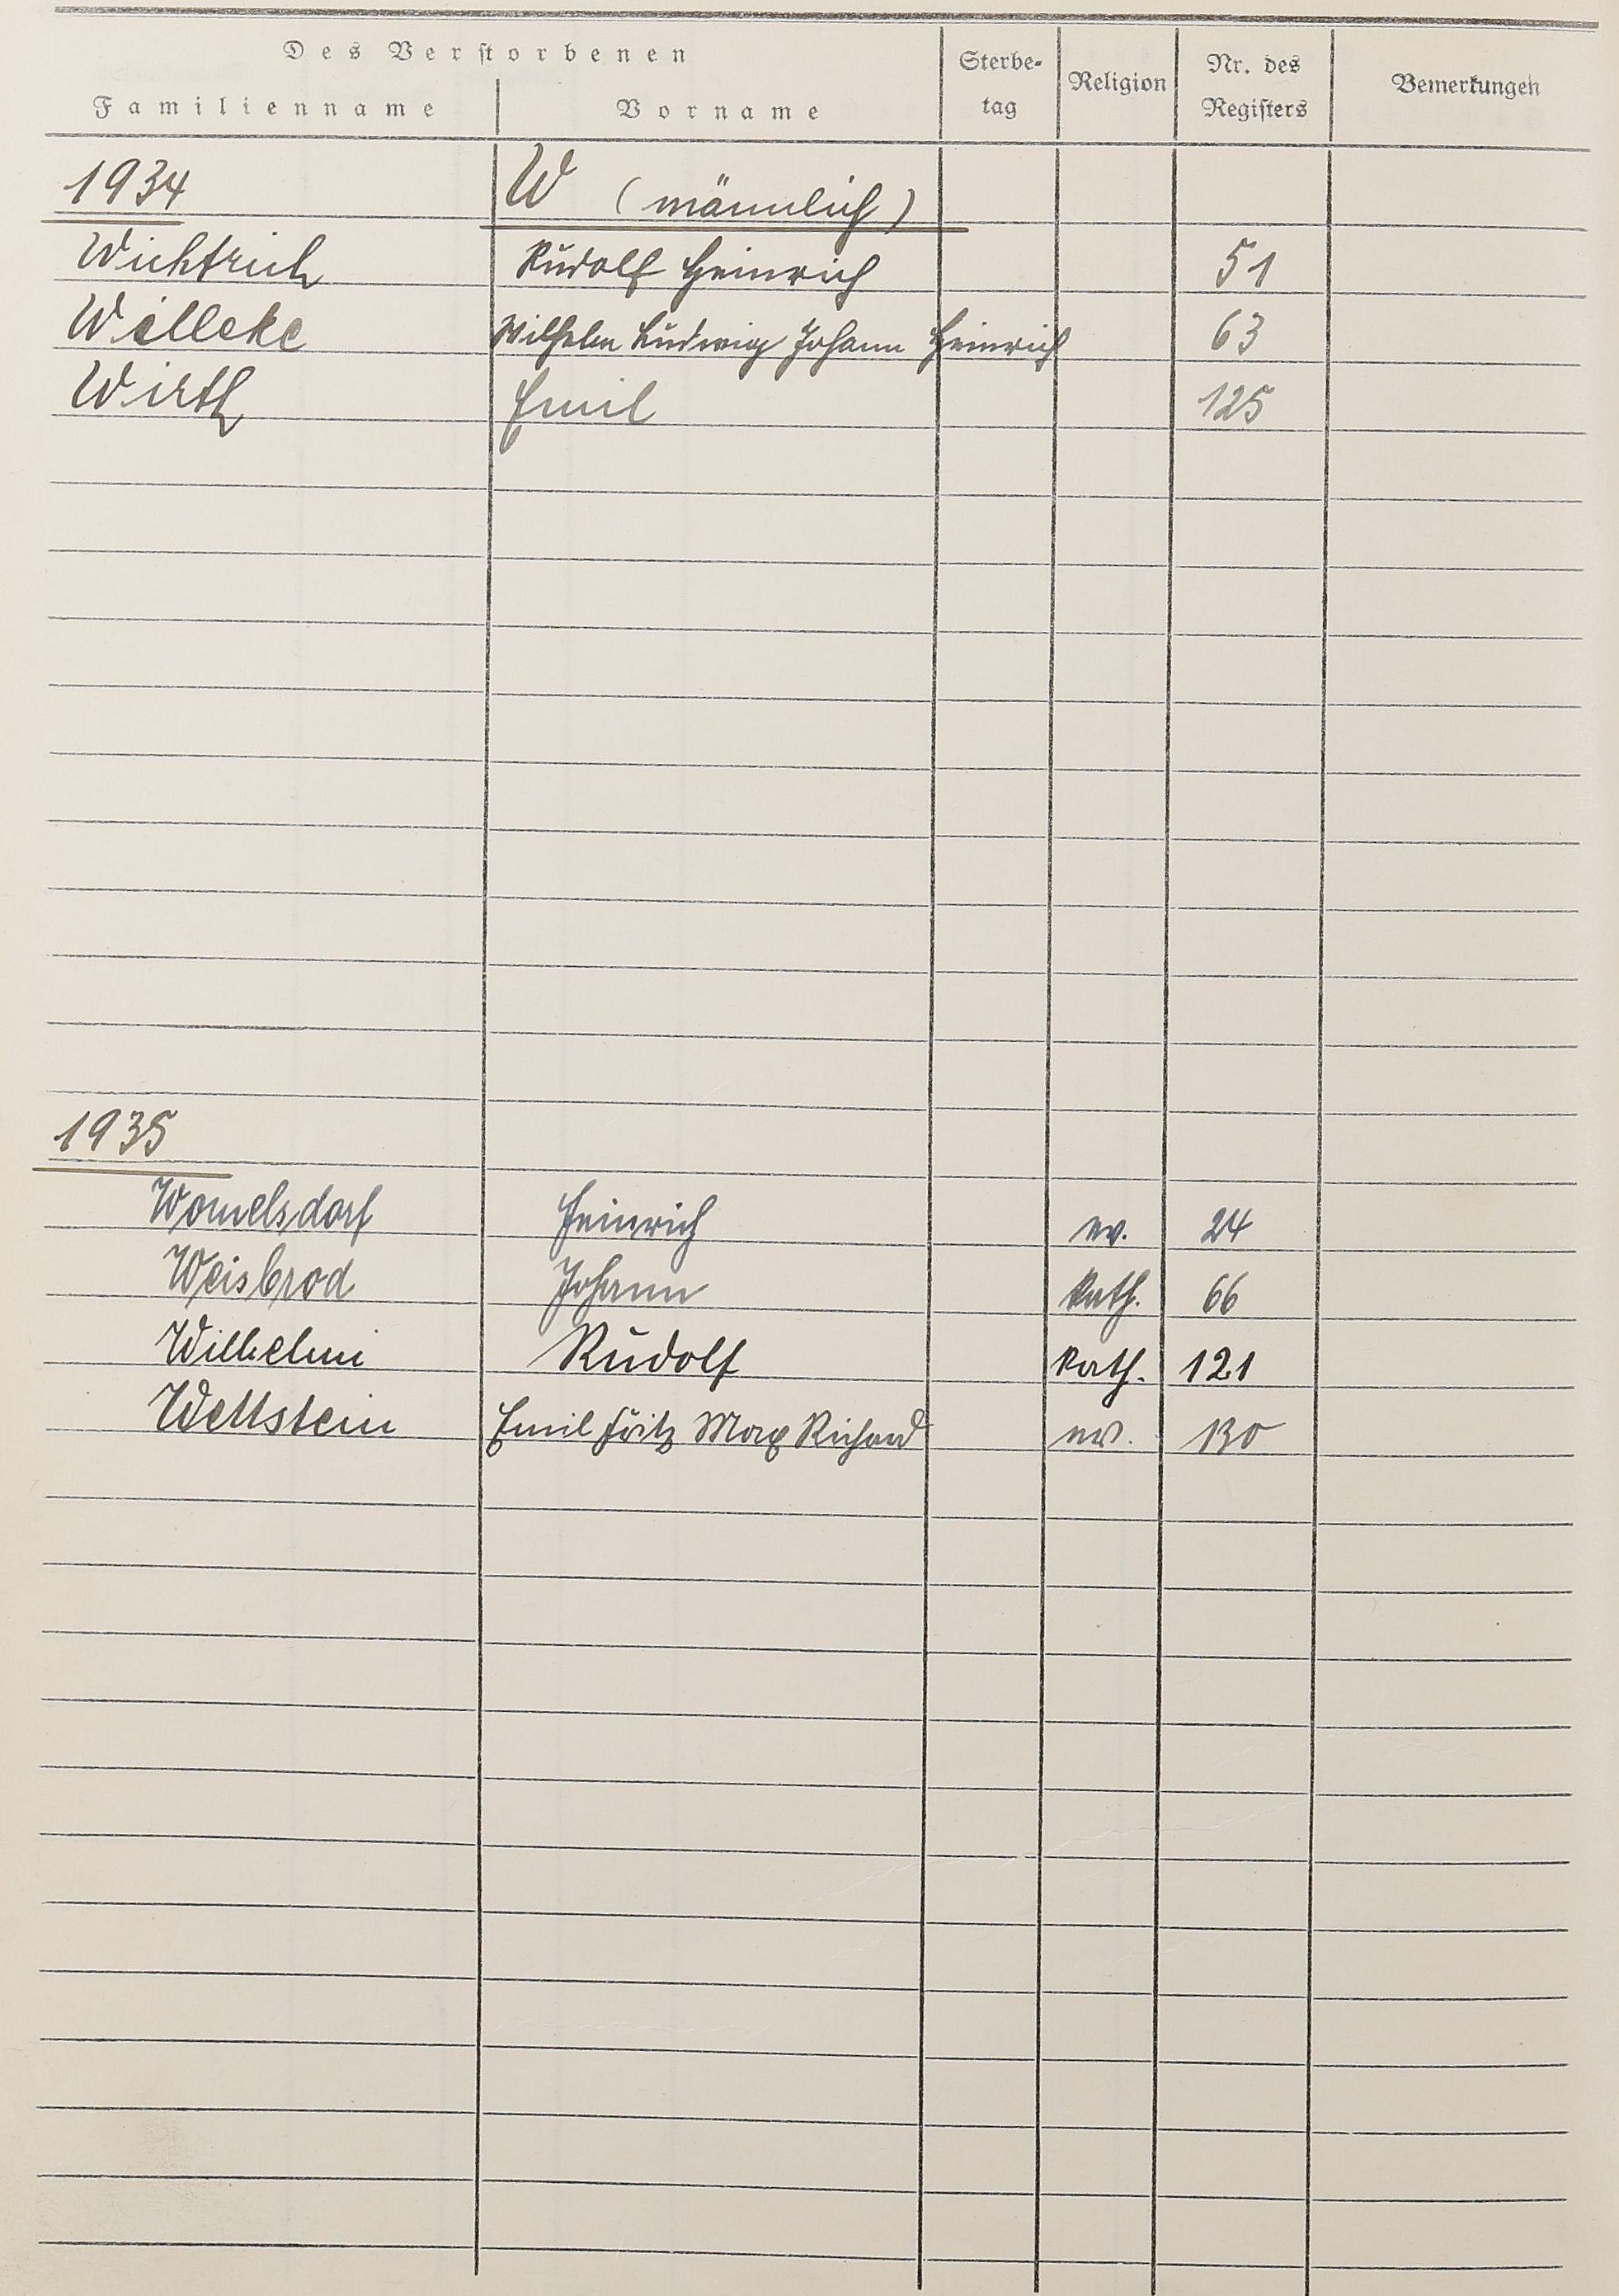 Des Verstorbenen
Familienname Vorname Sterbe-tag Religion Nr. des Registers Bemerkungen
1934 W (männlich)
Wichtrich Rudolf Heinrich 51
Willeke Wilhelm Ludwig Johann Heinrich 63
Wirth Emil 125
1935
Womelsdorf Heinrich ev. 24
Weisbrod Johann Kath. 66
Wilhelmi Rudolf Kath. 121
Wettstein Emil Fritz Max Richard ev. 130